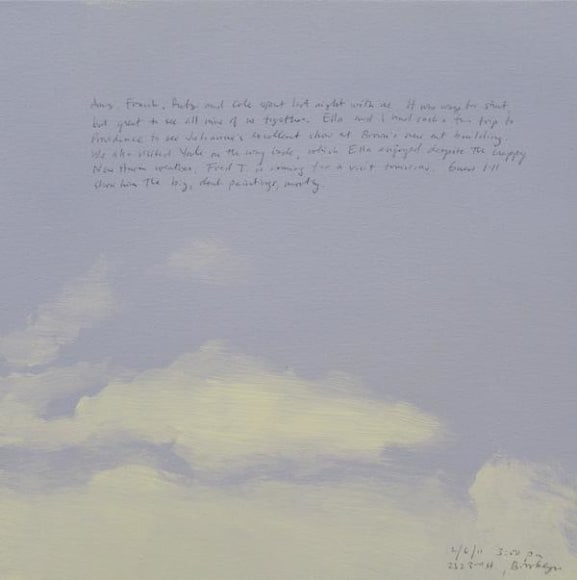 Amy, Frank, and Cole spent last night with us. It was way too short,
but great to see all nine of us together. Ella and I had such a fun trip to
Providence to see Julianne's excellent show at Brown's new art building.
We also visited Yale on the way back, which Ella enjoyed despite the crappy
New Haven weather. Fred T is coming for a visit tomorrow. Guess I'll
show him the big, dark paintings, mostly.
2/6/11 3:50 PM
Brooklyn